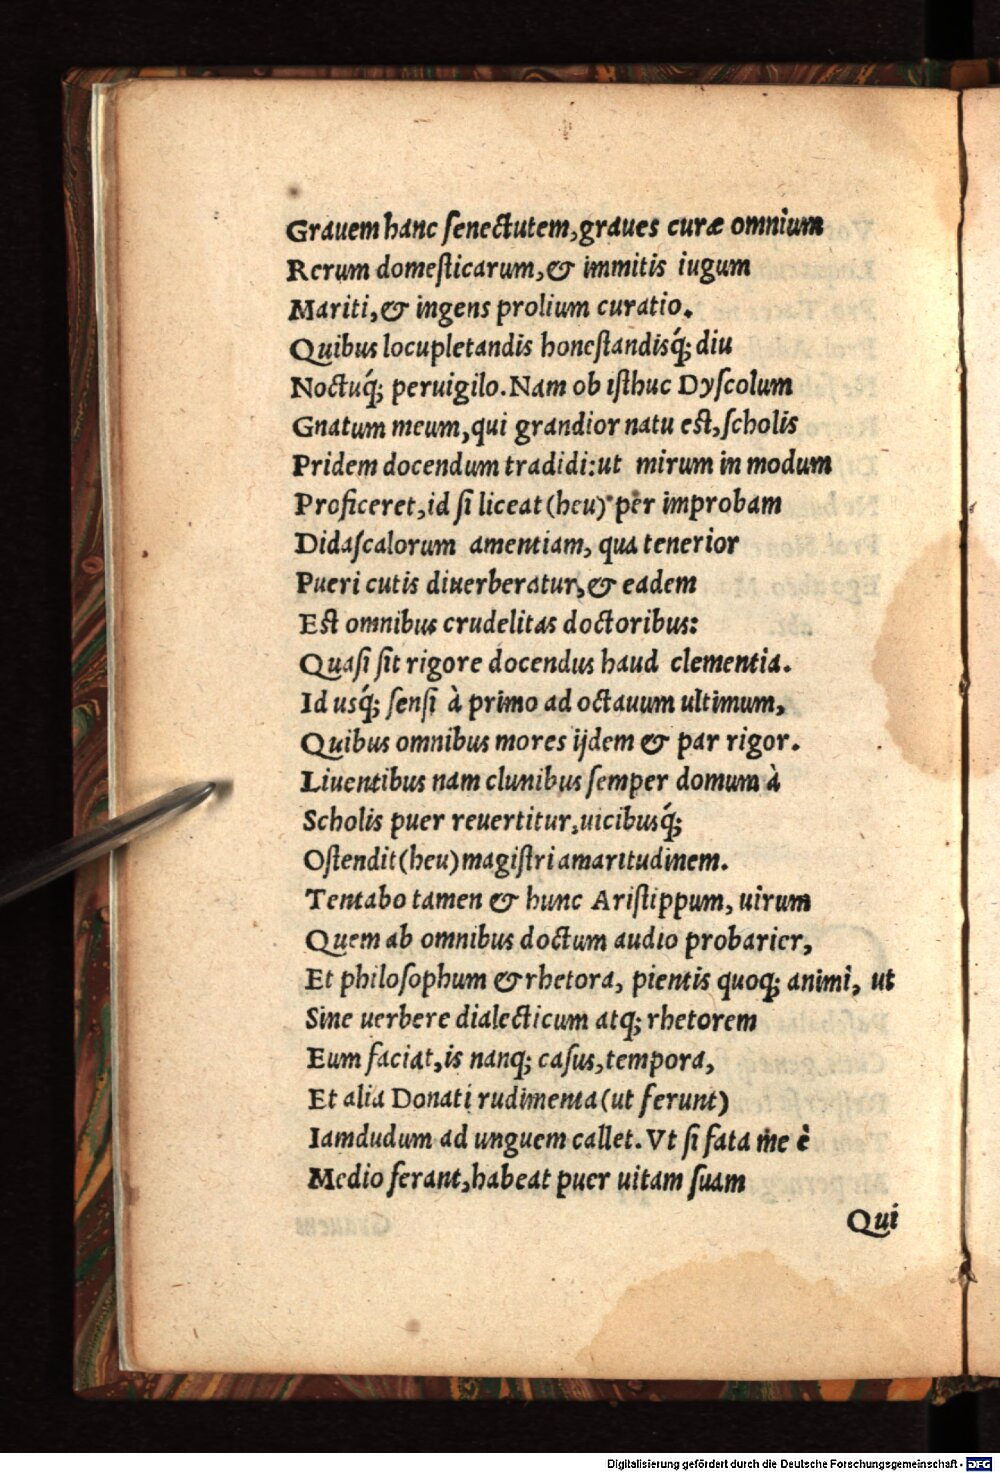 Grauem hanc ſenectutem, graues curæ omnium
Rerum domeſticarum, & immitis iugum
Mariti, & ingens prolium curatio.
Quibus locupletandis honeſtandisq́; diu
Noctuq́; peruigilo. Nam ob iſthuc Dyſcolum
Gnatum meum, qui grandior natu eſt, ſcholis
Pridem docendum tradidi: ut mirum in modum
Proficeret, id ſi liceat (heu) per improbam
Didaſcalorum amentiam, qua tenerior
Pueri cutis diuerberatur, & eadem
Eſt omnibus crudelitas doctoribus:
Quaſi ſit rigore docendus haud clementia.
Id usq́; ſenſi à primo ad octauum ultimum,
Quibus omnibus mores ijdem & par rigor.
Liuentibus nam clunibus ſemper domum à
Scholis puer reuertitur, uicibusq́;
Oſtendit (heu) magiſtri amaritudinem.
Tentabo tamen & hunc Ariſtippum, uirum
Quem ab omnibus doctum audio probarier,
Et philoſophum & rhetora, pientis quoq; animi, ut
Sine uerbere dialecticum atq; rhetorem
Eum faciat, is nanq; caſus, tempora,
Et alia Donati rudimenta (ut ferunt)
Iamdudum ad unguem callet. Vt ſi fata me è
Medio ferant, habeat puer uitam ſuam
Qui
Digitalisierung gefördert durch die Deutsche Forschungsgemeinschaft - DFG